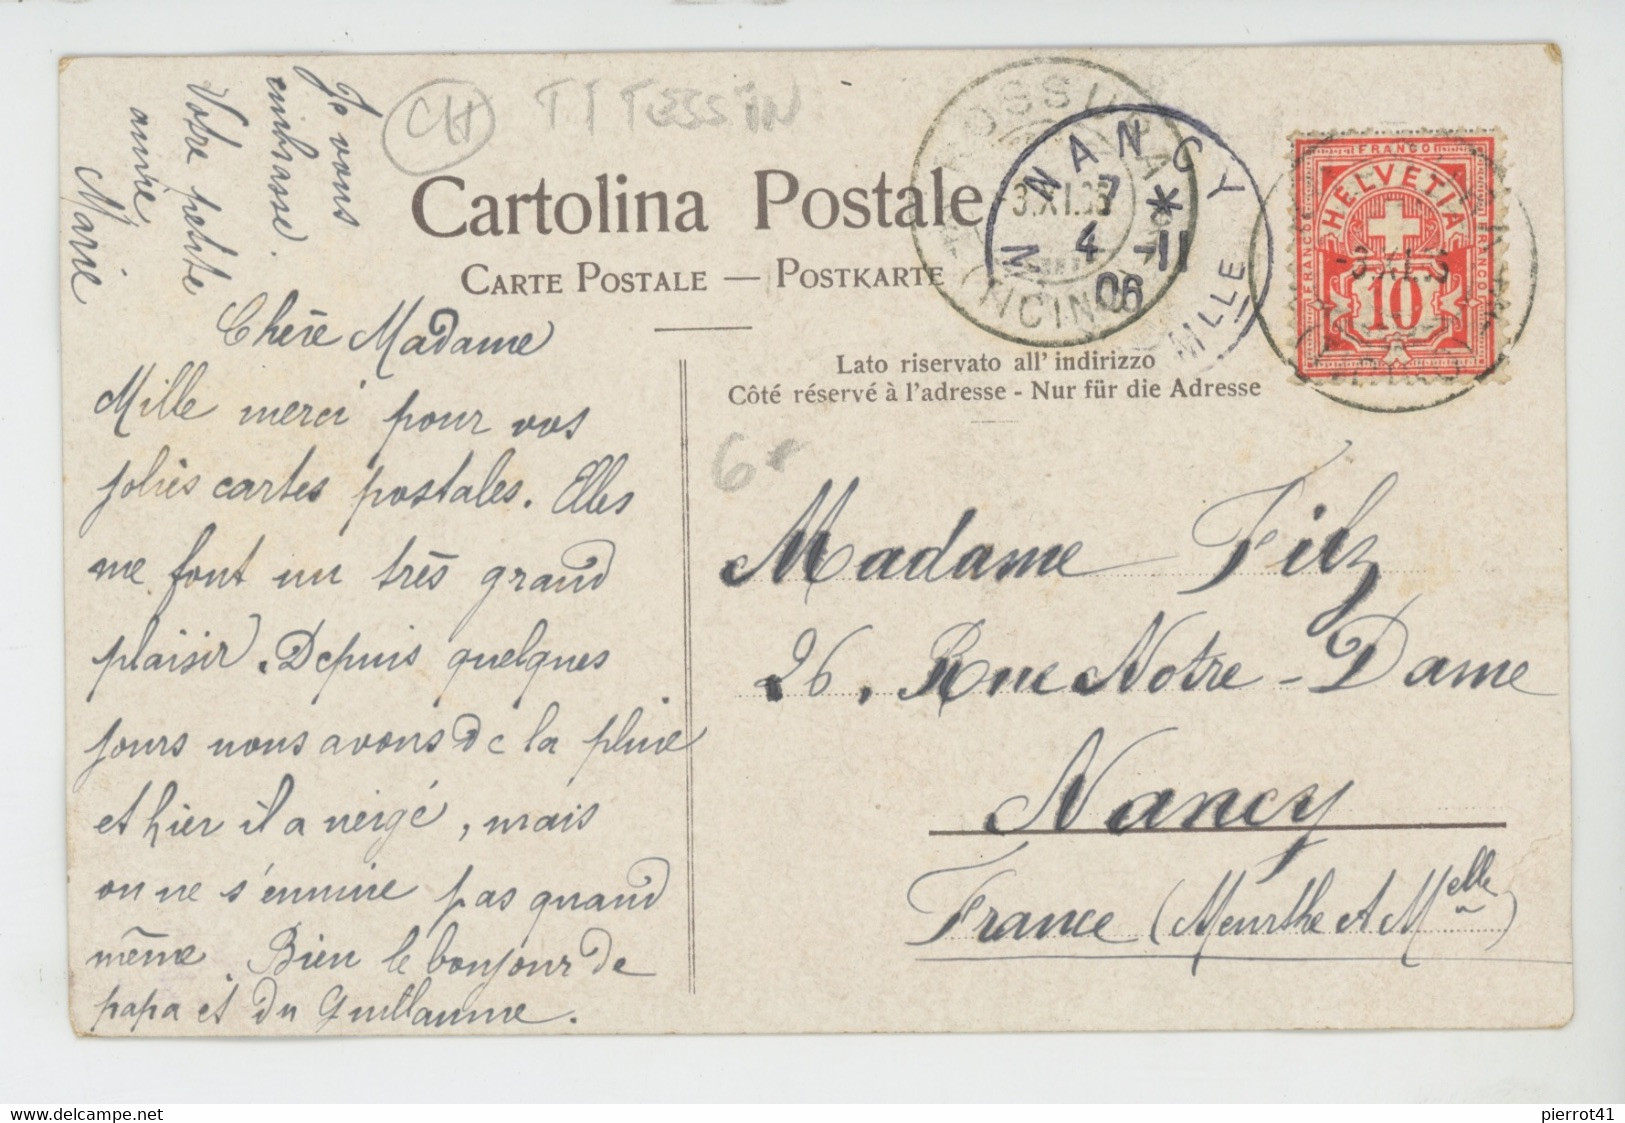 CH TI TESSIN
Cartolina Postale
CARTE POSTALE — POSTKARTE
Lato riservato all' indirizzo
Côté réservé à l'adresse - Nur für die Adresse
NANCY
7 *
4 -11
06
MLLE
3.XI.
FRANCO
HELVETIA
FRANCO
FRANCO
10
-3.XI.
6€
Chère Madame
Mille merci pour vos
jolies cartes postales. Elles
me font un très grand
plaisir. Depuis quelques
jours nous avons de la pluie
et hier il a neigé, mais
on ne s'ennuie pas quand
même. Bien le bonjour de
papa et du Guillaume.
Je vous
embrasse.
Votre petite
amie
Marie
Madame Filz
26, Rue Notre-Dame
Nancy
France (Meurthe et Melle)
pierrot41